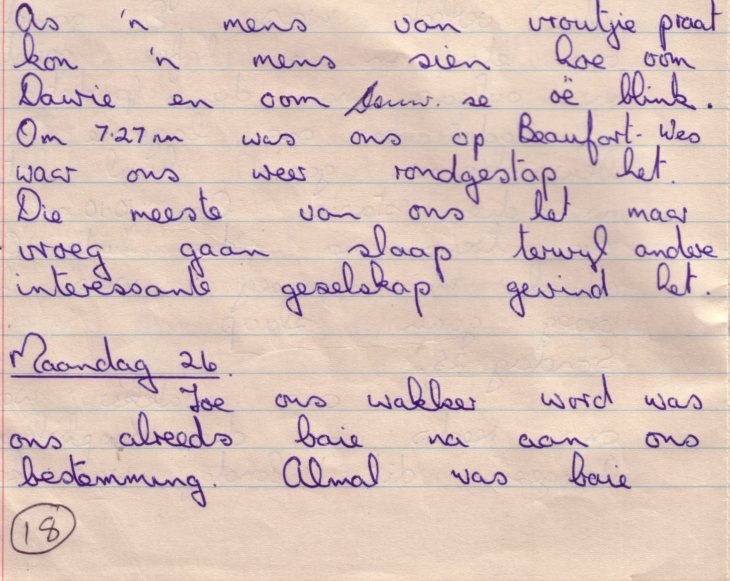 As 'n mens van vroutjie praat
kon 'n mens sien hoe oom
Dawie en oom Douw. se oë blink.
Om 7.27 nm was ons op Beaufort-Wes
waar ons weer rondgestap het.
Die meeste van ons het maar
vroeg gaan slaap terwyl andere
interessante geselskap gevind het.
Maandag 26.
Toe ons wakker word was
ons alreeds baie na aan ons
bestemming. Almal was baie
18